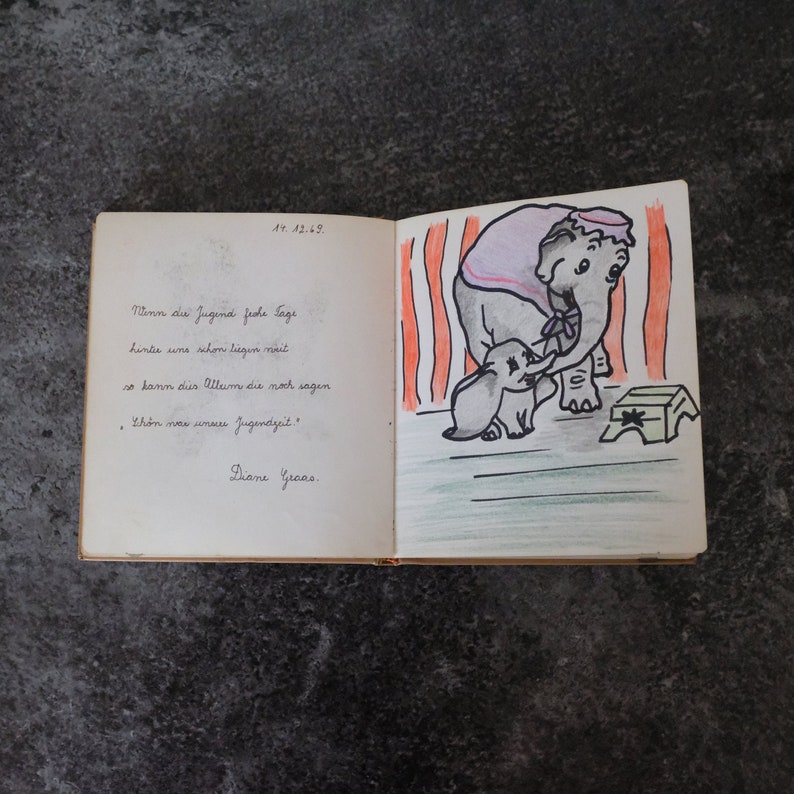 14.12.69.
Wenn die Jugend frohe Tage
hinter uns schon liegen weit
so kann dies Album dir noch sagen
„Schön war unsere Jugendzeit."
Diane Graas.